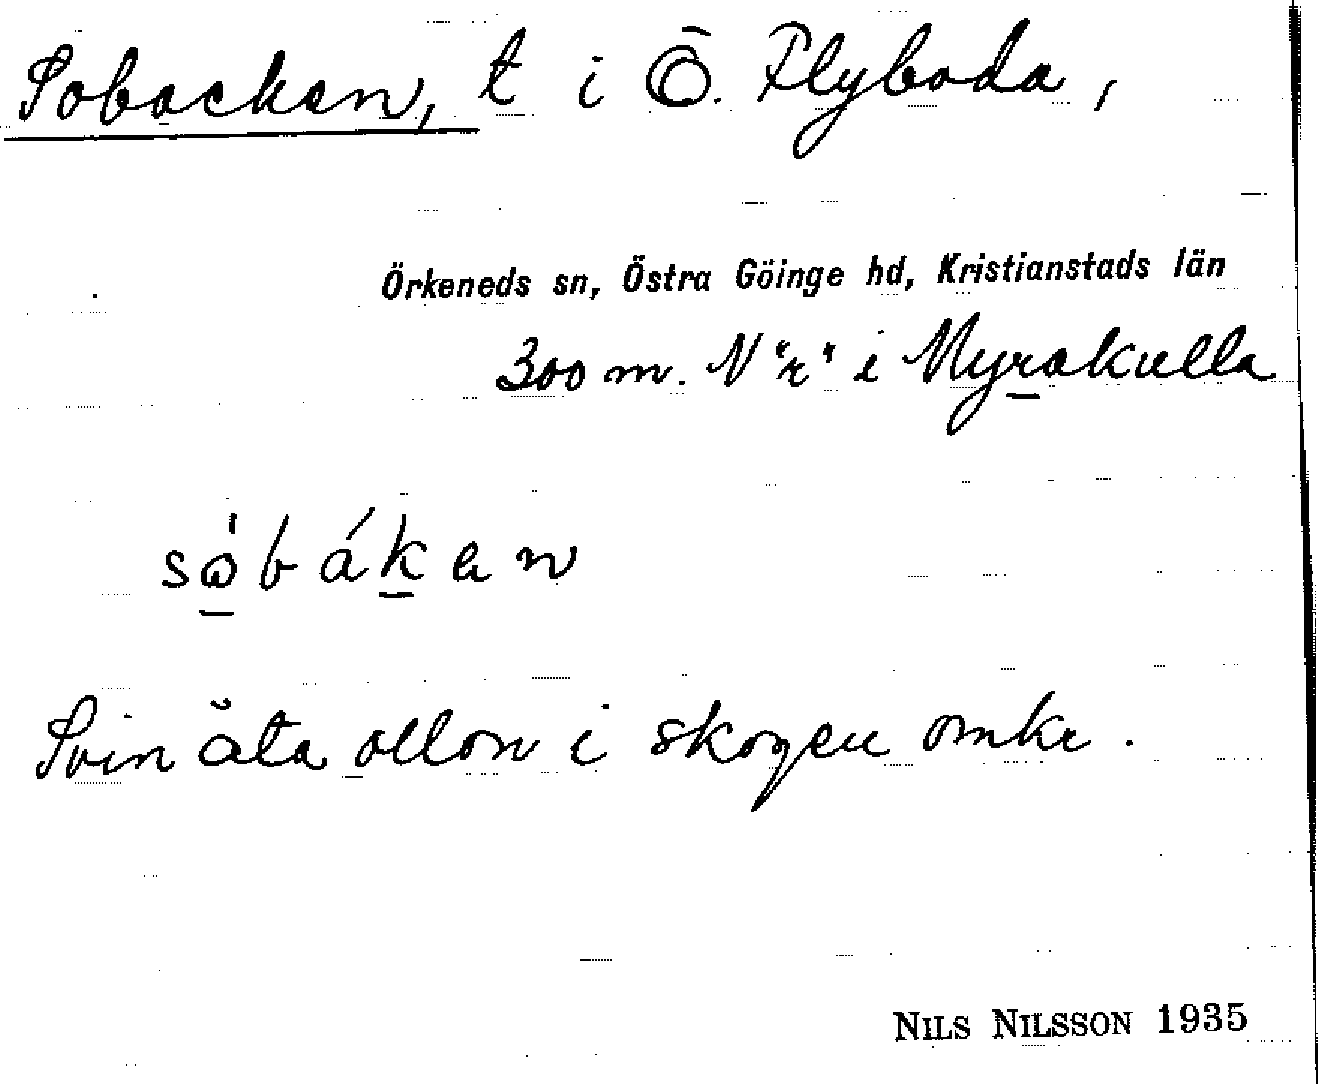 Sobacken, t i Ö. Flyboda,
Örkeneds sn, Östra Göinge hd, Kristianstads län
300 m. N "r" i Myrakulla
sobákan
Svin äta ollon i skogen omkr.
NILS NILSSON 1935